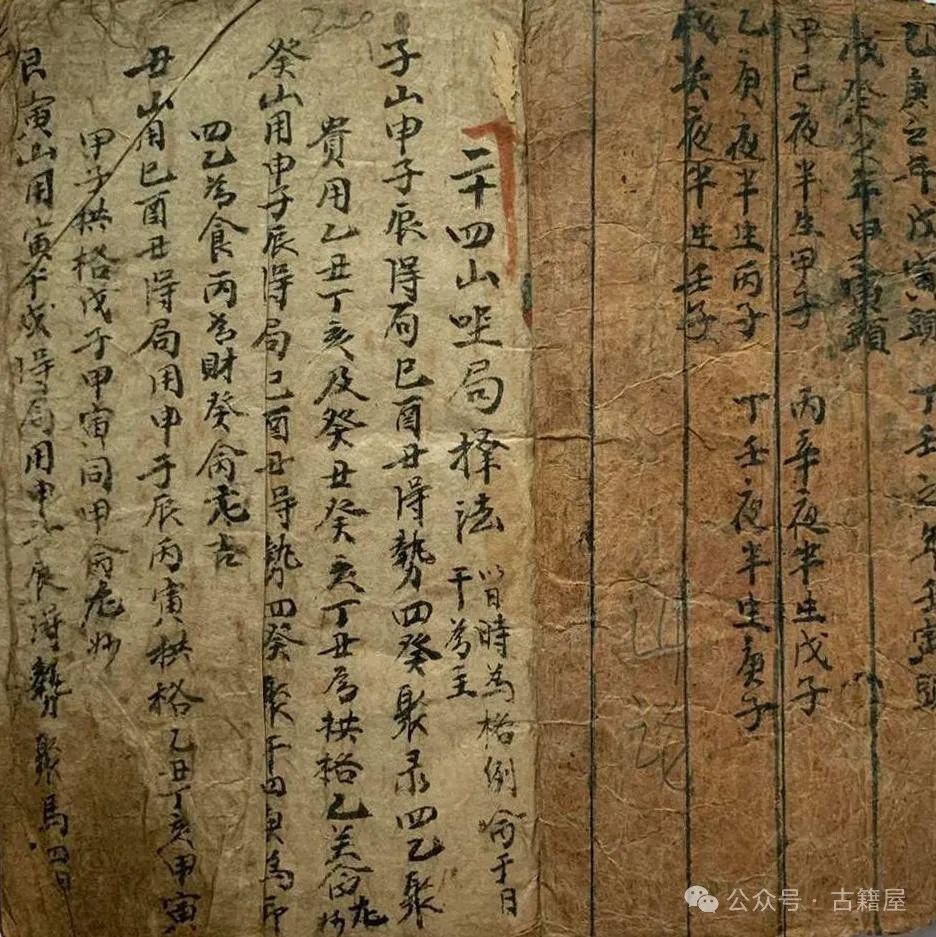 乙庚之年戊寅頭 丁壬之年壬寅頭
戊癸之年甲寅頭
甲己夜半生甲子 丙辛夜半生戊子
乙庚夜半生丙子 丁壬夜半生庚子
戊癸夜半生壬子
二十四山坐局择法 以日時為格例俞于日干為主
子山申子辰得局巳酉丑得勢四癸聚录四乙聚
貴用乙丑丁亥及癸丑癸亥丁丑為拱格乙美俞尤妙
癸山用申子辰得局巳酉丑得势四癸聚干四庚為印
四乙為食丙為財癸俞尤吉
丑山用巳酉丑得局用申子辰丙寅拱格乙丑丁亥甲寅
甲子拱格戊子甲寅同甲俞尤妙
艮寅山用寅午戌得局用申子辰得勢聚馬四
公众号·古籍屋